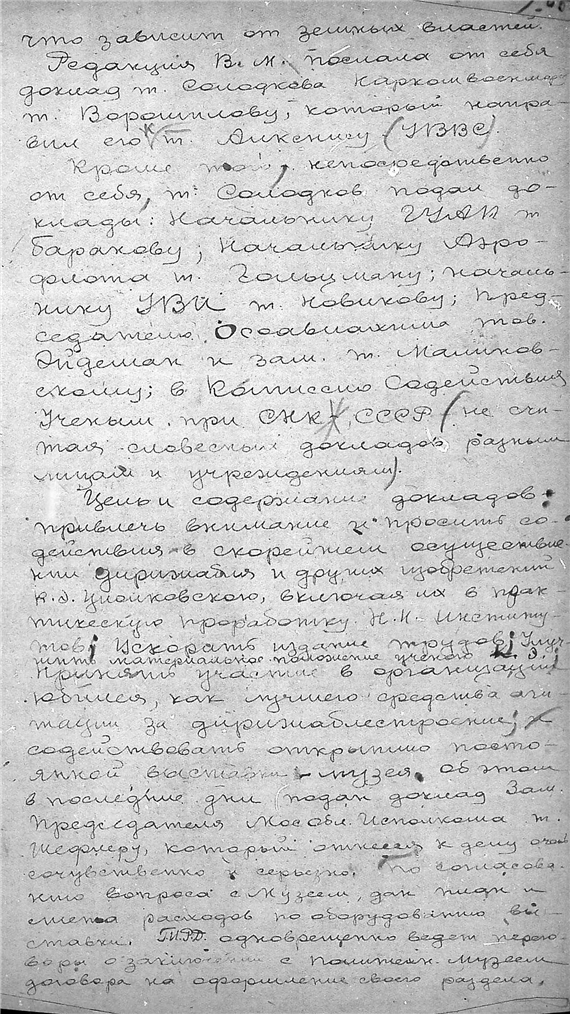 что зависит от земных властей.
Редакция В.М. послала от себя
доклад т. Солодкова Наркомвоенмору
т. Ворошилову, который напра-
вил его к т. Алкснису (УВВС).
Кроме того, непосредственно
от себя, т. Солодков подал до-
клады: Начальнику ГУАП т
Баранову; Начальнику Аэро-
флота т. Гольцману; началь-
нику УВИ т. Новикову; Пред-
седателю Осоавиахима тов.
Эйдеман и зам. т. Малинов-
скому; в Комиссию Содействия
Ученым при СНК СССР (не счи-
тая словесных докладов разным
лицам и учреждениям).
Цель и содержание докладов:
привлечь внимание и просить со-
действия в скорейшем осуществле-
нии дирижабля и других изобретений
К.Э. Циолковского, включая их в прак-
тическую проработку Н.И. Институ-
тов; Ускорить издание трудов; Улуч-
шить материальное положение ученого К.Э.;
Принять участие в организации
юбилея, как лучшего средства аги-
тации за дирижаблестроение; и
содействовать открытию посто-
янной выставки - музея. об этом
в последние дни подан доклад Зам.
Председателя Мособл. Исполкома т.
Шефлеру, который отнесся к делу очень
сочувственно и серьезно. По согласова-
нию вопроса с Музеем, дан план и
смета расходов по оборудованию вы-
ставки. одновременно ведет перего-
воры о заключении с Политехн. Музеем
договора на оформление своего раздела.